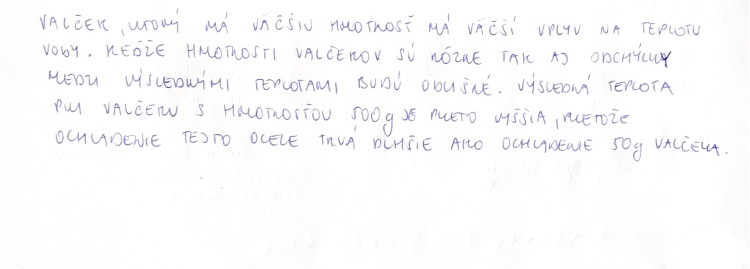 VALČEK, KTORÝ MÁ VÄČŠIU HMOTNOSŤ MÁ VÄČŠÍ VPLYV NA TEPLOTU
VODY. KEĎŽE HMOTNOSTI VALČEKOV SÚ RÔZNE TAK AJ ODCHÝLKY
MEDZI VÝSLEDNÝMI TEPLOTAMI BUDÚ ODLIŠNÉ. VÝSLEDNÁ TEPLOTA
PRI VALČEKU S HMOTNOSŤOU 500g JE PRETO VYŠŠIA, PRETOŽE
OCHLADENIE TEJTO OCELE TRVÁ DLHŠIE AKO OCHLADENIE 50g VALČEKA.